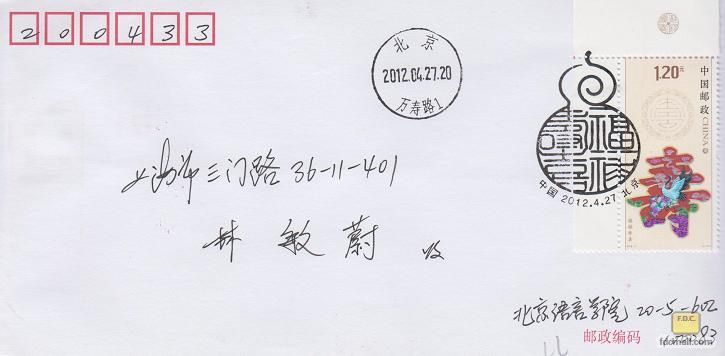 200433
北京
2012.04.27.20
万寿路1
1.20元
中国邮政 CHINA
中国 2012.4.27 北京
上海市三门路 36-11-401
林敏蔚 收
北京语言学院 20-5-602
邮政编码
F.D.C.
fdcmall.com